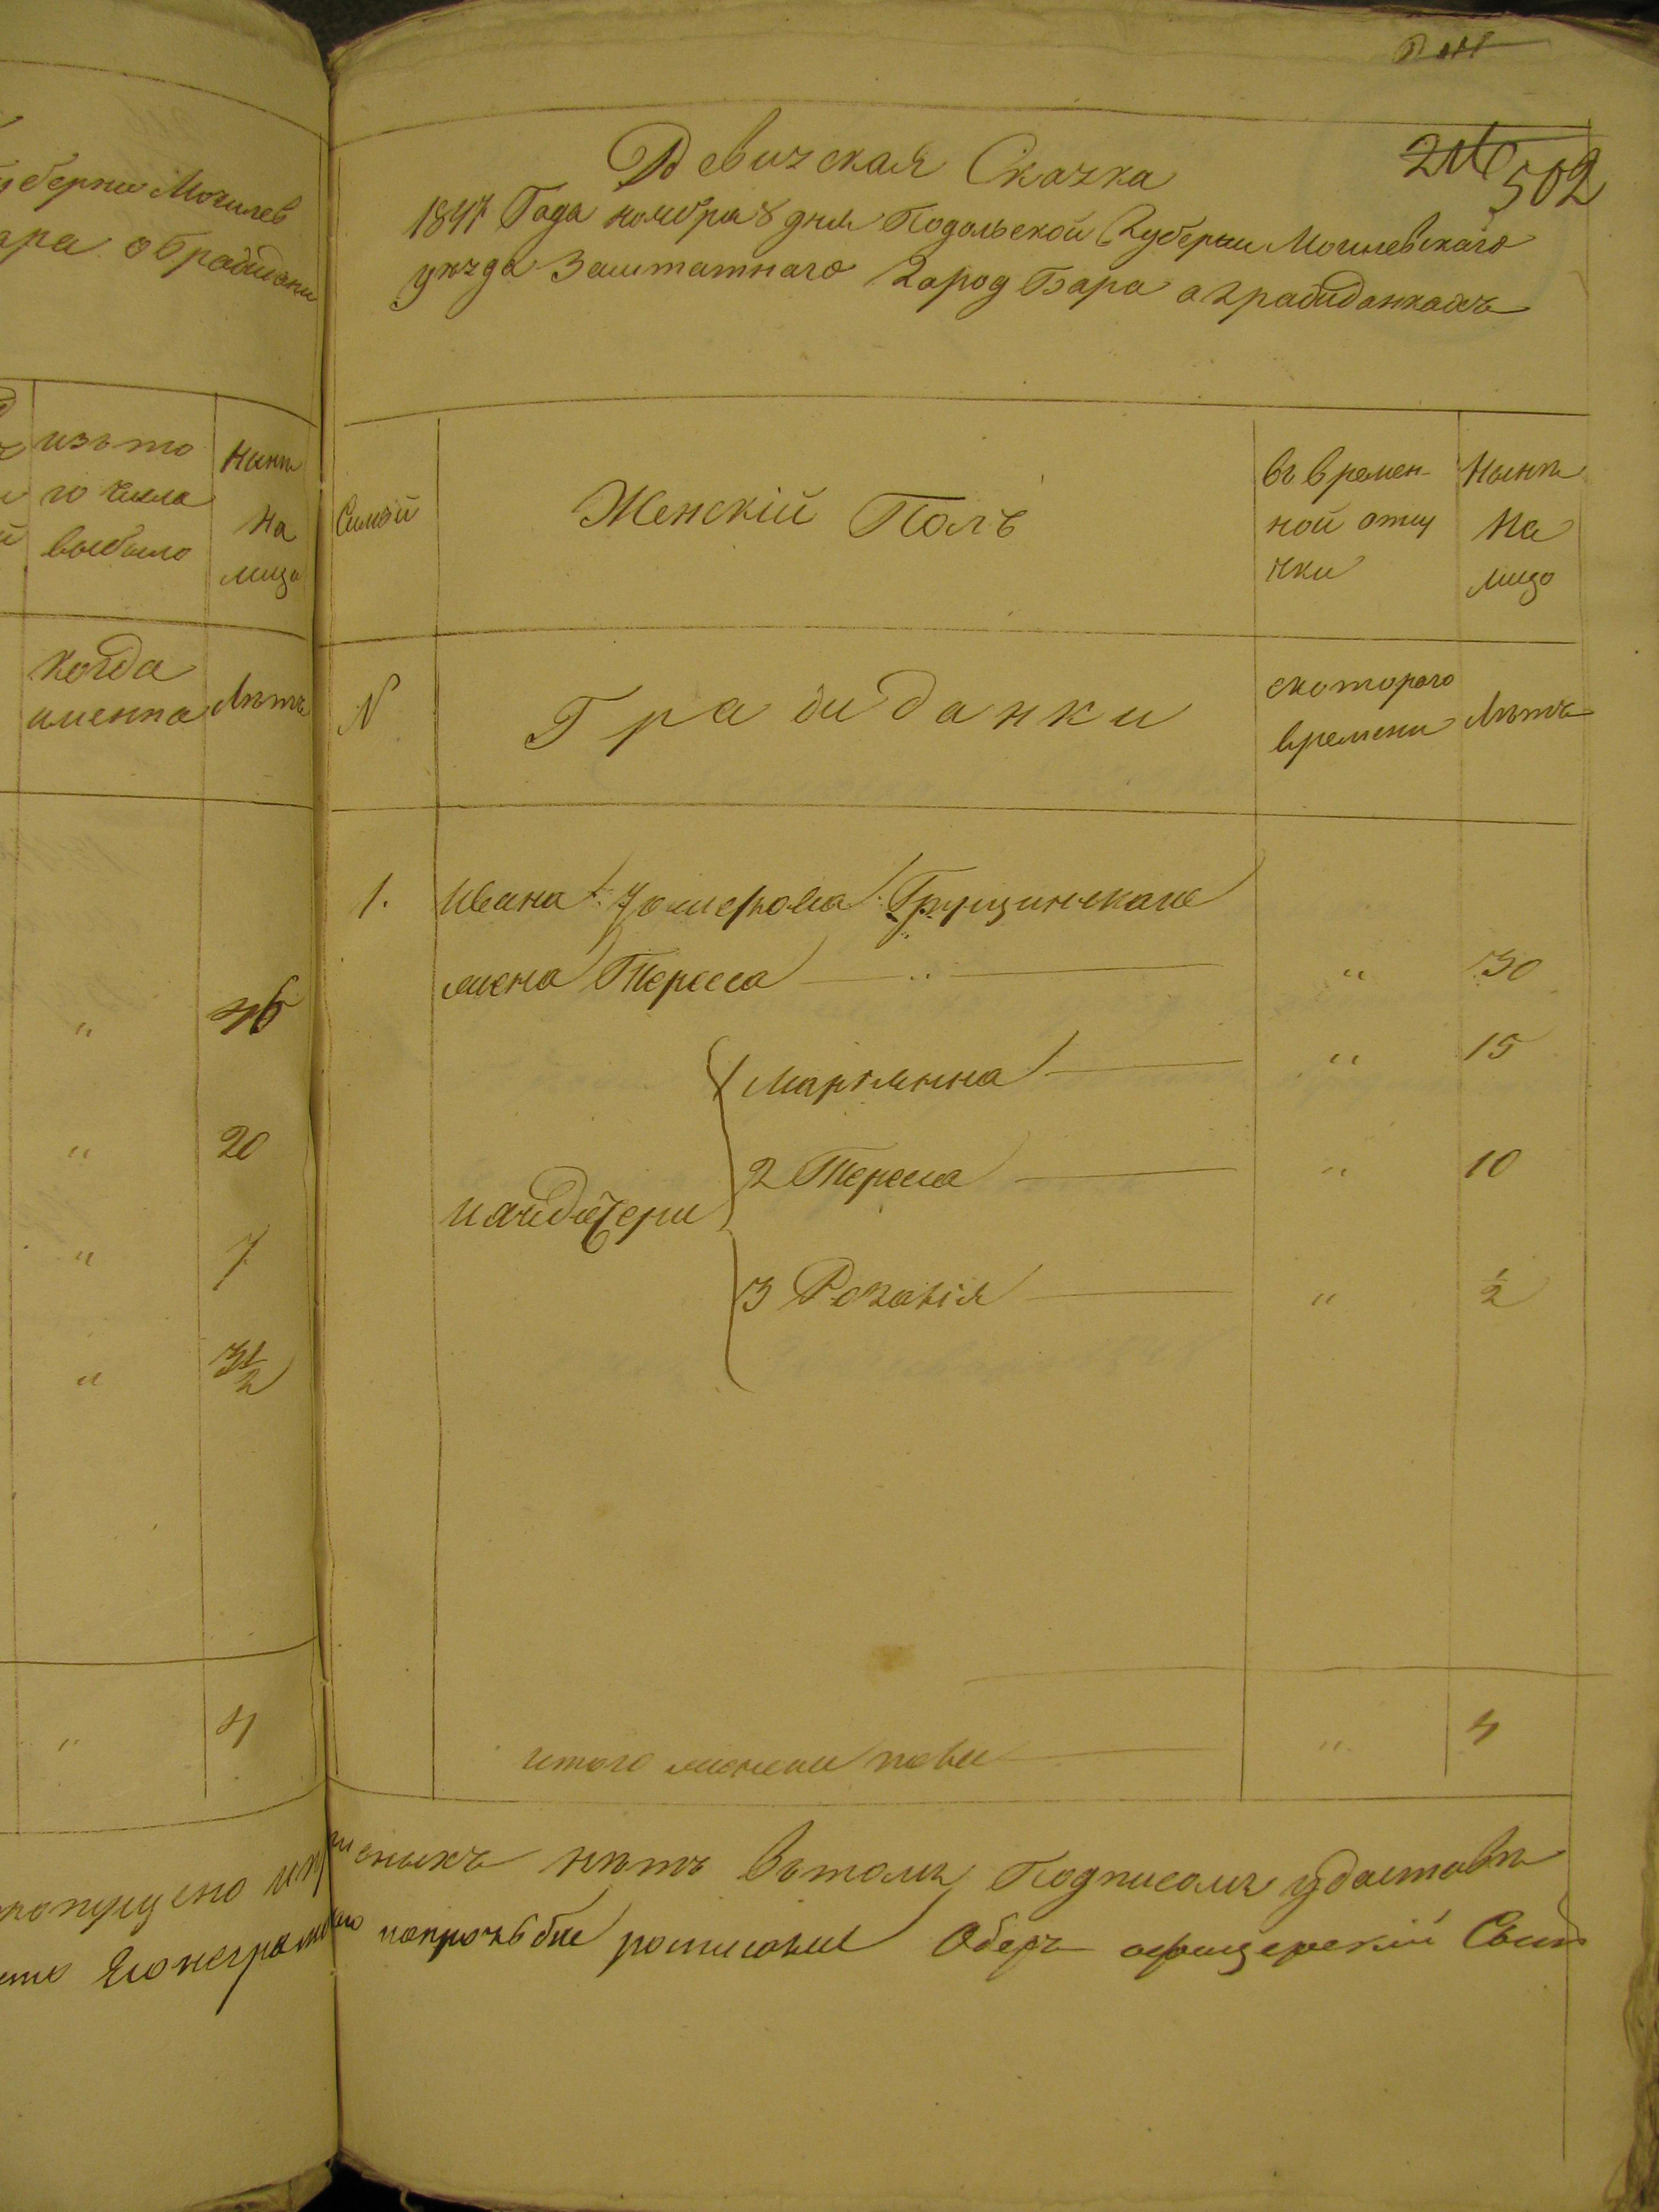 губерніи Могилев
бара о Граждани
изъ то
го числа
выбыло
Нынѣ
на
лицо
когда
именно
Лѣтъ
46
20
7
3½
4
пропущено и пр
Его неграмот
502
Ревизская Сказка
1847 Года ноября 8 дня Подольской Губерніи Могилевскаго
уѣзда Заштатнаго Город Бара о гражданкахъ
Семьи
Женскій Полъ
въ времен-
ной отлу
чки
Нынѣ
На
лицо
N
Гражданки
скоторого
времени
Лѣтъ
1. Ивана Іозефова Грущинскаго
жена Тересса " 30
Маріянна " 15
2 Тересса " 10
ихъ дочери
3 Розалія " ½
итого женска пола " 4
оныхъ нѣтъ Вътомъ Подписомъ удостовѣ
попрозьбѣ росписался Оберъ офицерскій Сынъ